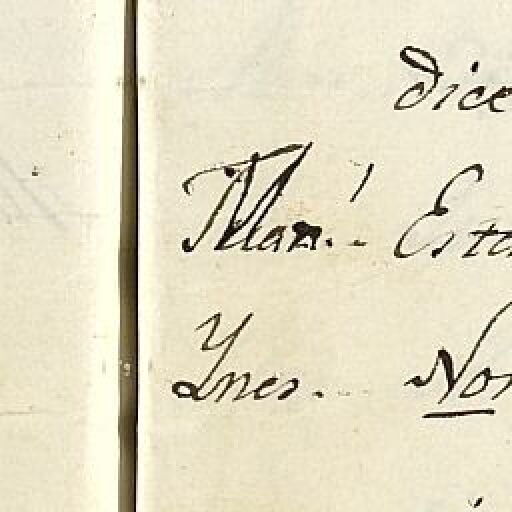 dice
Man.l Esta
Ynes. No